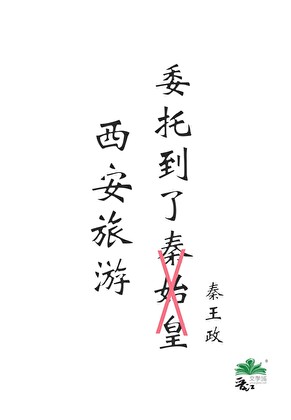 委托到了秦始皇
秦王政
西安旅游
晋江
文學城